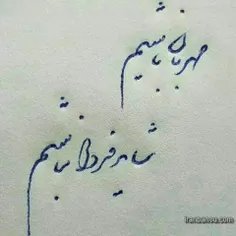 مهربان باشیم
شاید فردا نباشیم
iranbanou.com